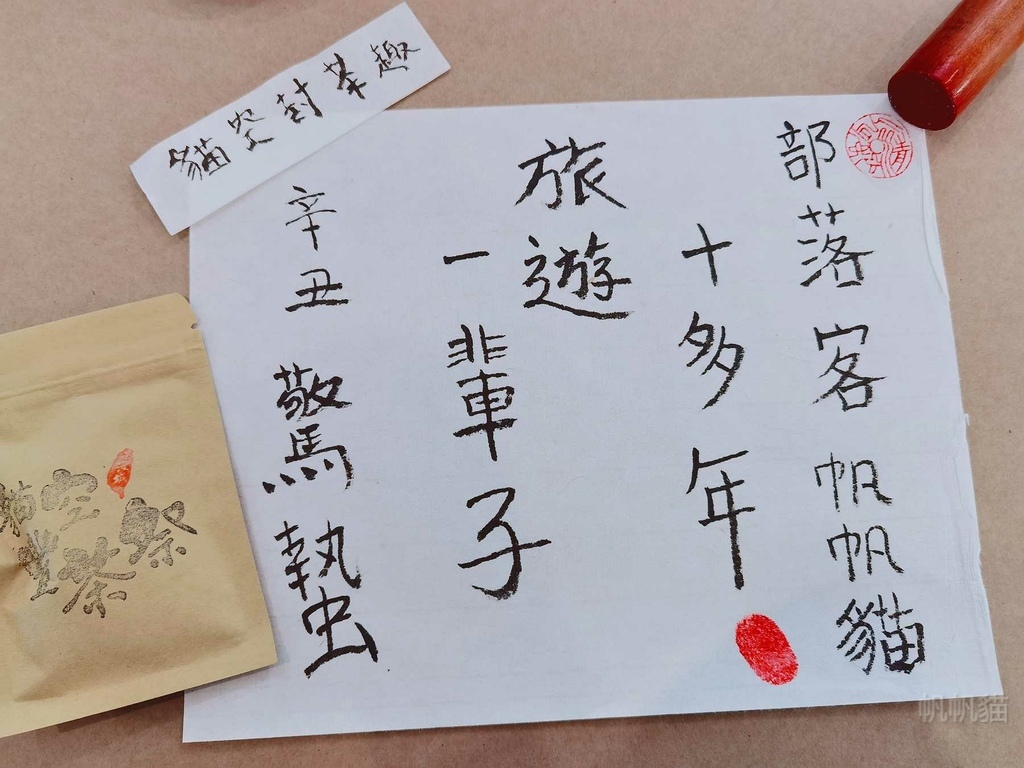 貓空封茶趣
部落客帆帆貓
十多年
旅遊
一輩子
辛丑驚蟄
貓空
豐茶祭
帆帆貓